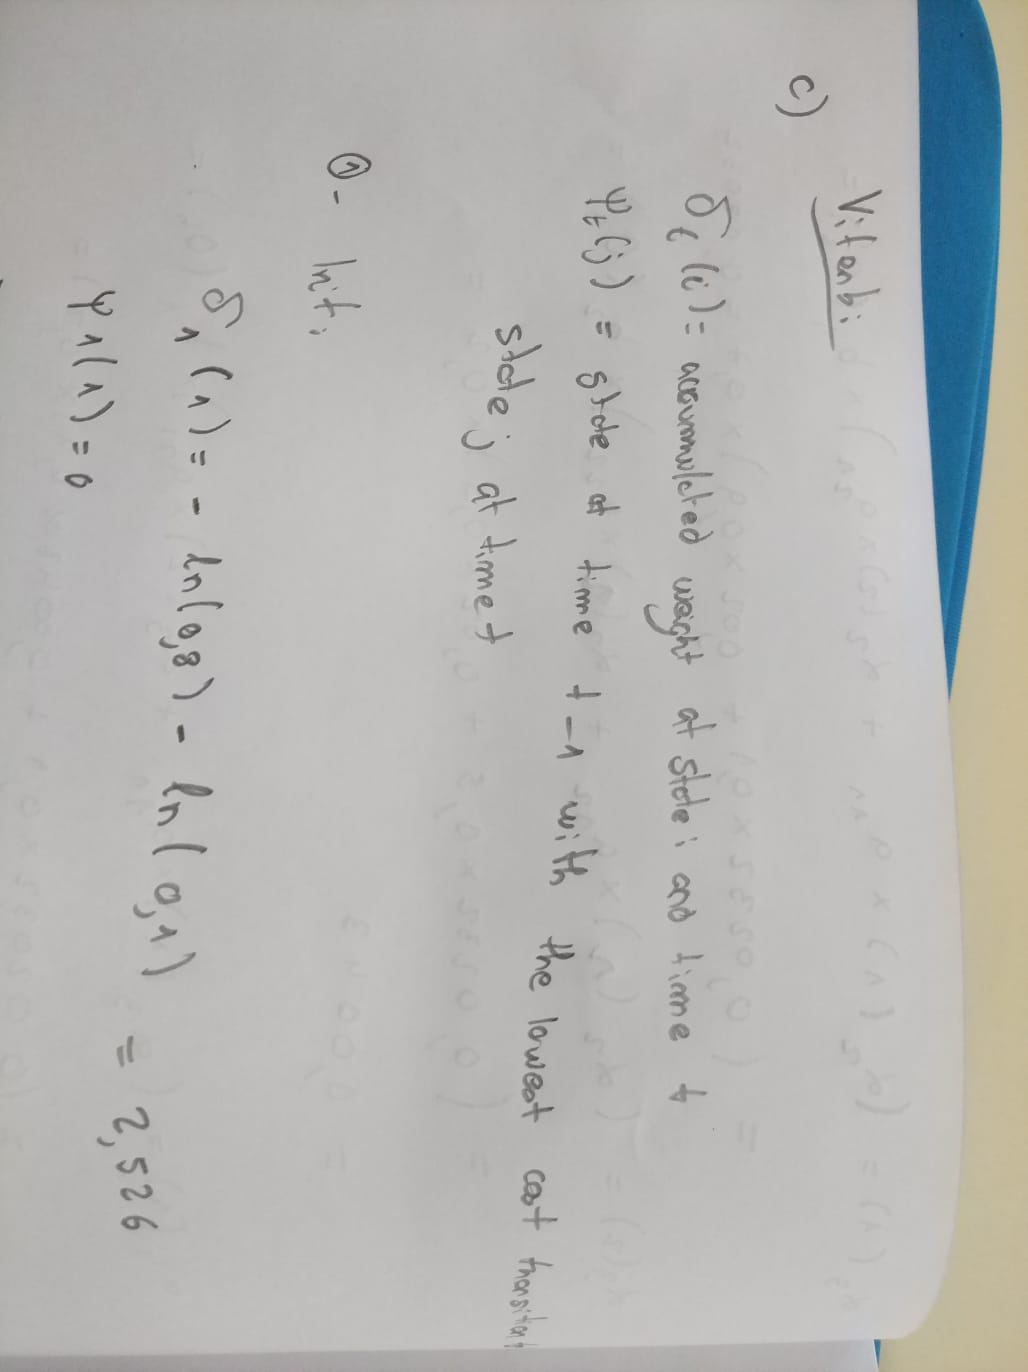 c) Viterbi
δt(i) = accumulated weight at state i and time t
Ψt(j) = state at time t-1 with the lowest cost transition
state j at time t
①- Init:
δ1(1) = - ln(0,8) - ln(0,1) = 2,526
Ψ1(1) = 0